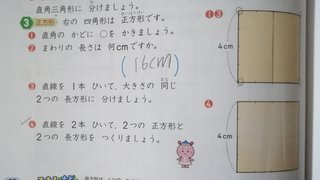 直角三角形に 分けましょう。
3 正方形 右の 四角形は 正方形です。
❶ 直角の かどに ○を かきましょう。
❷ まわりの 長さは 何cmですか。
(16cm)
❸ 直線を 1本 ひいて、大きさの 同じ
2つの 長方形に 分けましょう。
❹ 直線を 2本 ひいて、2つの 正方形と
2つの 長方形を つくりましょう。
❶❸
4cm
❹
4cm